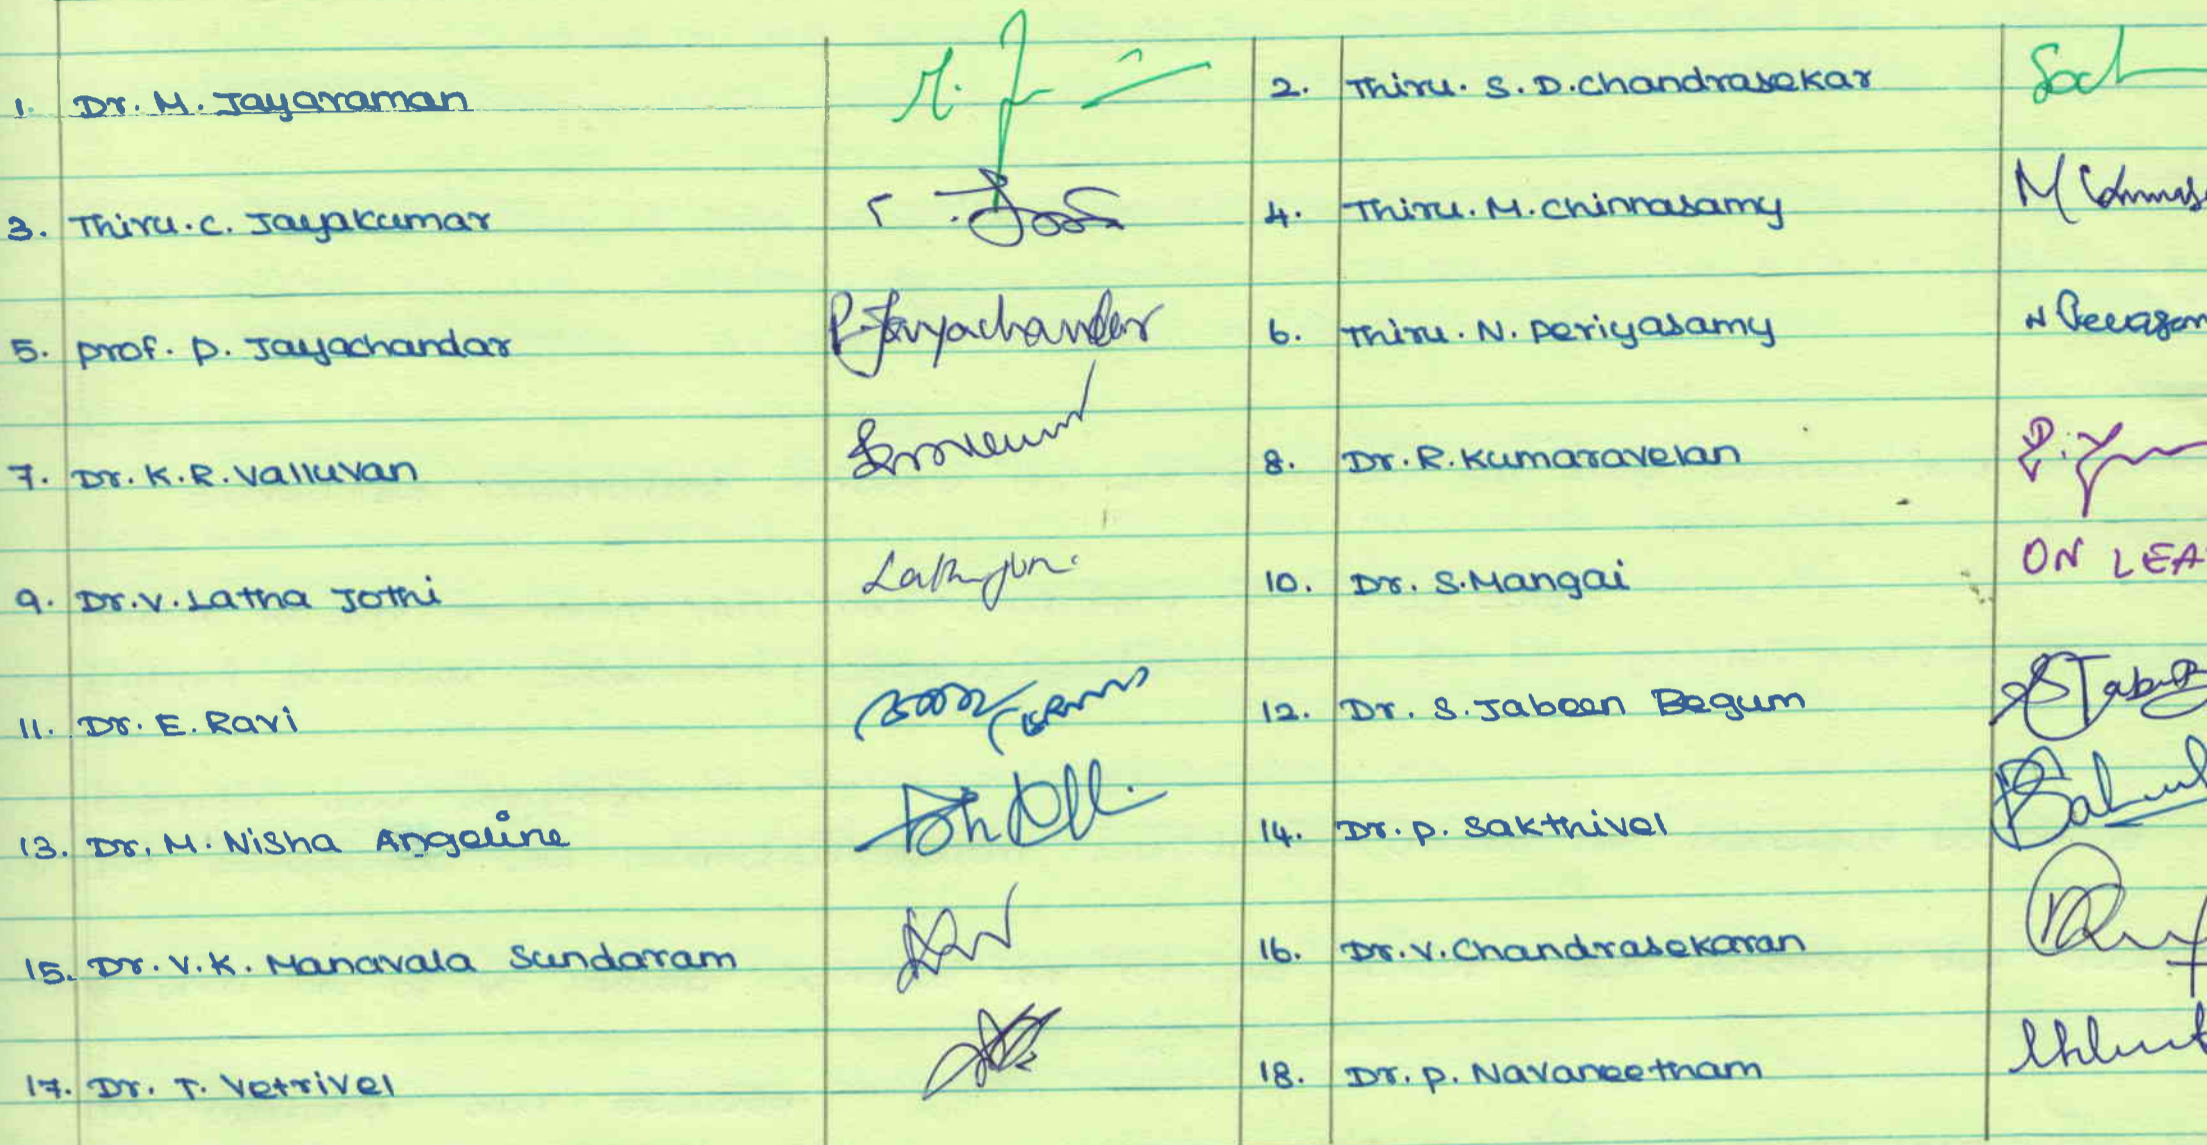 1. Dr. M. Jayaraman 2. Thiru. S. D. Chandrasekar
3. Thiru. C. Jayakumar 4. Thiru. M. Chinnasamy
5. Prof. P. Jayachandar P. Jayachandar 6. Thiru. N. Periyasamy
7. Dr. K. R. Valluvan 8. Dr. R. Kumaravelan
9. Dr. V. Latha Jothi 10. Dr. S. Mangai ON LEA
11. Dr. E. Ravi 12. Dr. S. Jabeen Begum
13. Dr. M. Nisha Angeline 14. Dr. P. Sakthivel
15. Dr. V. K. Manavala Sundaram 16. Dr. V. Chandrasekaran
17. Dr. T. Vetrivel 18. Dr. P. Navaneetham